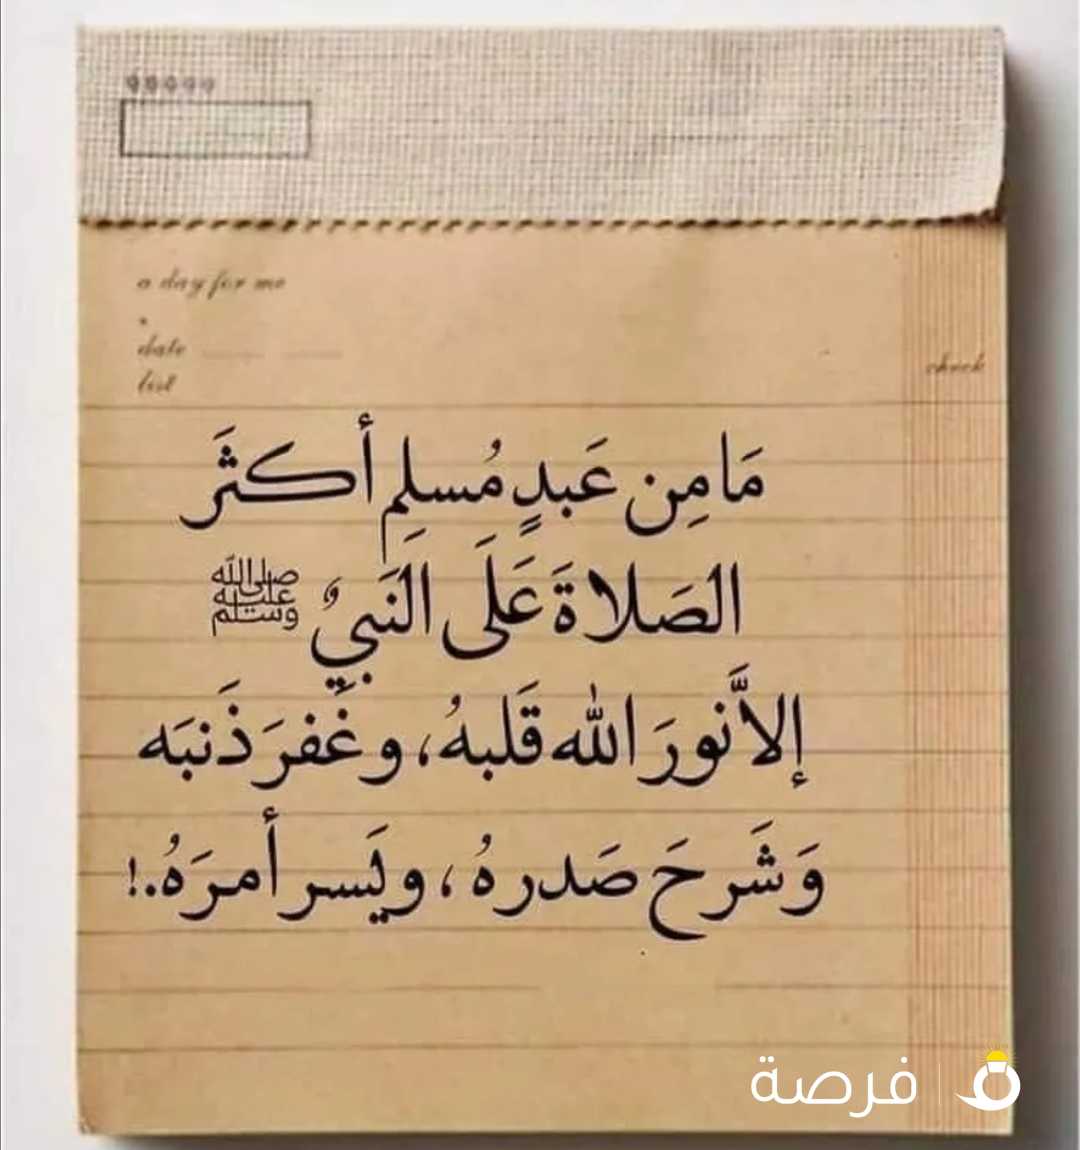 a day for me
date
list
check
مَا مِن عَبدٍ مُسلِمِ أكثَر
الصَلاةَ عَلَى النَبيِ وُ ﷺ
إلاَّ نورَ الله قَلبهُ، و غَفرَ ذَنبَه
وَشَرحَ صَدرهُ ، و يَسر أمرَهُ.!
فرصة